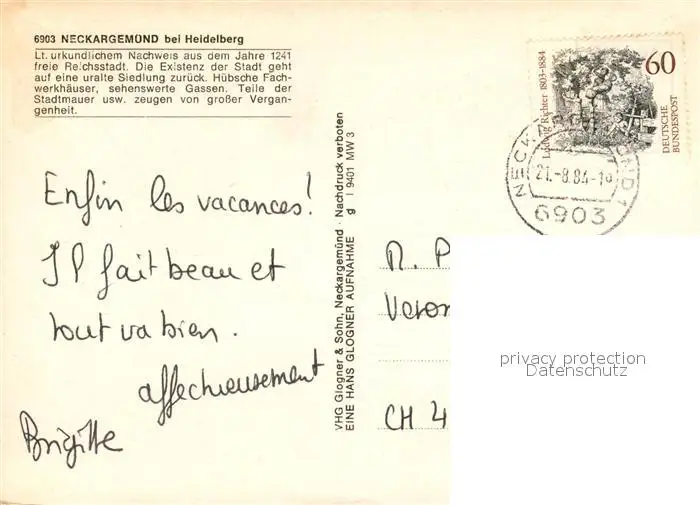 6903 NECKARGEMÜND bei Heidelberg
Lt. urkundlichem Nachweis aus dem Jahre 1241
freie Reichsstadt. Die Existenz der Stadt geht
auf eine uralte Siedlung zurück. Hübsche Fach-
werkhäuser, sehenswerte Gassen. Teile der
Stadtmauer usw. zeugen von großer Vergan-
genheit.
Enfin les vacances!
Il fait beau et
tout va bien.
affectueusement
Brigitte
VHG Glogner & Sohn, Neckargemünd · Nachdruck verboten
EINE HANS GLOGNER AUFNAHME g I 9401 MW 3
Ludwig Richter 1803-1884
60
DEUTSCHE
BUNDESPOST
21.-8.84-
6903
M. P
Veron
CH 4
privacy protection
Datenschutz